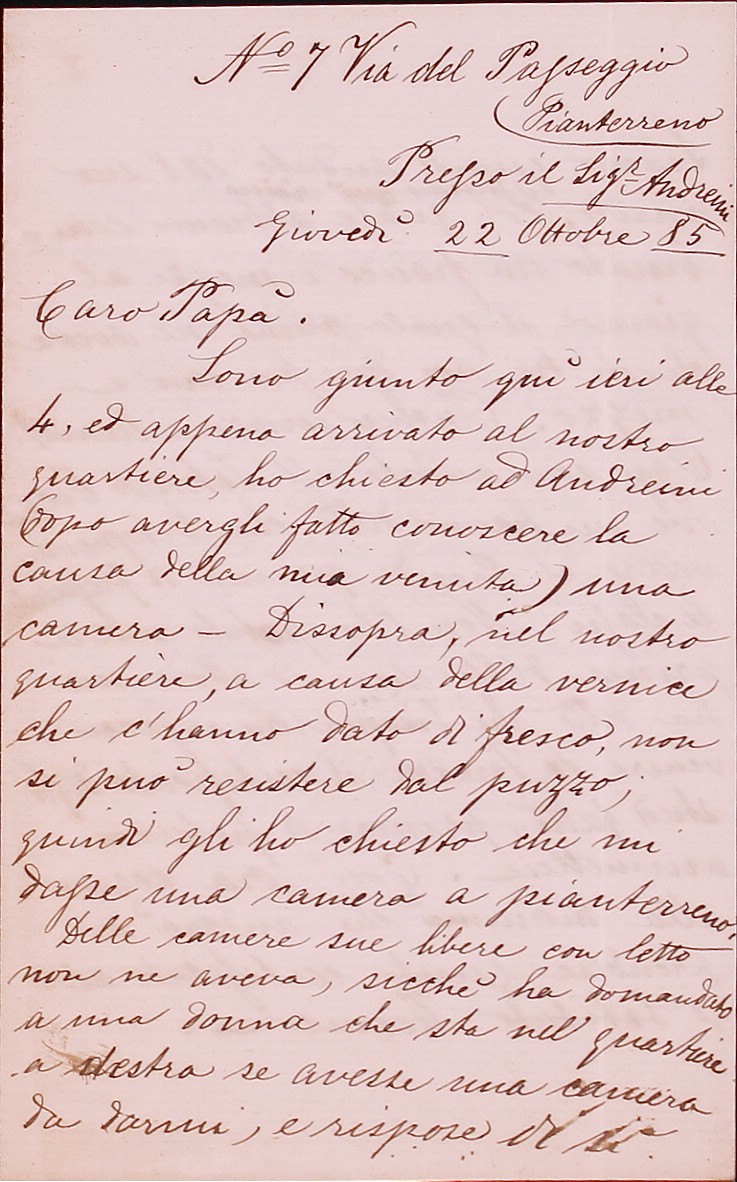 Nº 7 Via del Passeggio
(Pianterreno
Presso il Sigr Andreini
Giovedì 22 Ottobre 85
Caro Papà.
Sono giunto quì ieri alle
4, ed appena arrivato al nostro
quartiere, ho chiesto ad Andreini
(dopo avergli fatto conoscere la
causa della mia venuta) una
camera – Dissopra, nel nostro
quartière, a causa della vernice
che c'hanno dato di fresco, non
si può resistere dal puzzo;
quindi gli ho chiesto che mi
dasse una camera a pianterreno.
Delle camere sue libere con letto
non ne aveva, sicchè ha domandato
a una donna che sta nel quartiere
a destra se avesse una camera
da darmi, e rispose di sì